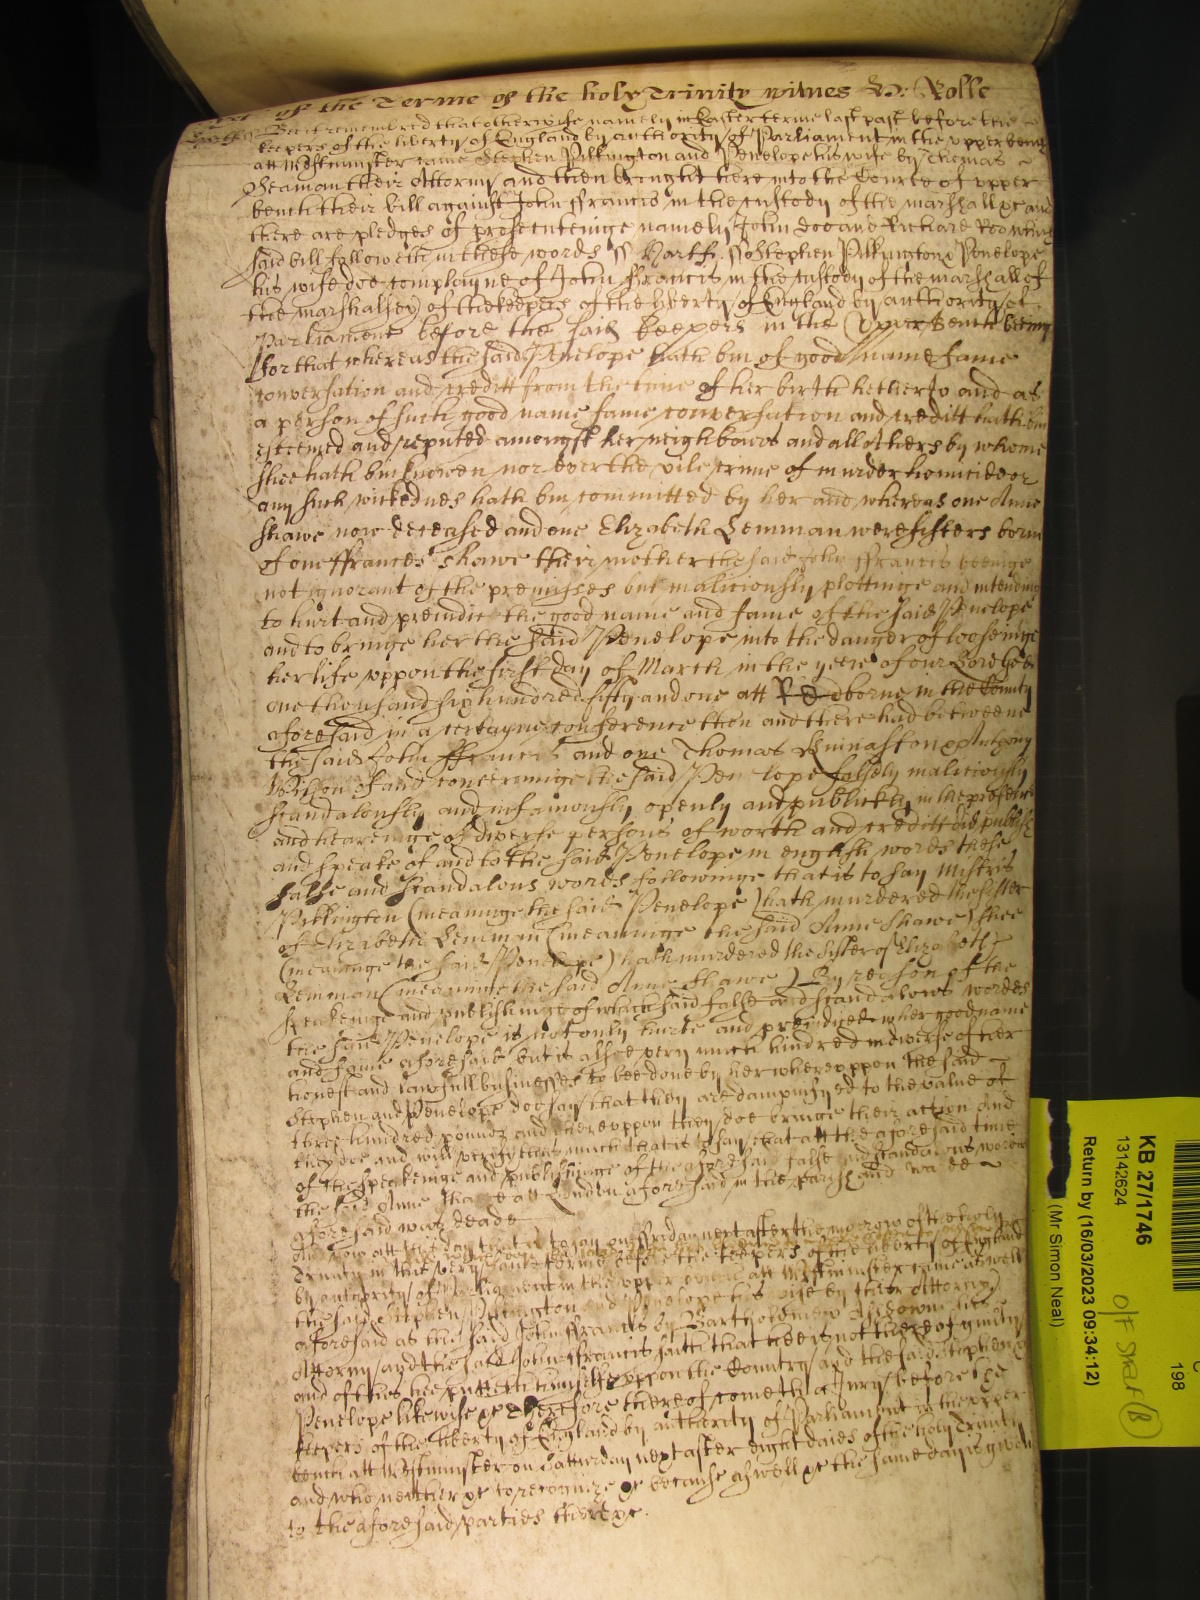 of the Terme of the holy Trinity witnes H: Rolle
Bee it remembred that otherwise namely in Easter terme last past before the
keepers of the liberty of England by authority of Parliament in the upper bench
att Westminster came Stephen Pilkington and Penelope his wife by Thomas
Seaman their Attorny and then brought here into the Court of upper
bench their bill against John ffrancis in the custody of the marshall &c and
there are pledges of prosecuteinge namely John doe and Richard Roe which
said bill followeth in these words ss Norff ss Stephen Pilkington & Penelope
his wife doe complayne of John ffrancis in the custody of the marshall of
the marshalsey of the keepers of the liberty of England by authority of
Parliament before the said keepers in the Upper Bench beeing
for that whereas the said Penelope hath bin of good name fame
conversation and creditt from the time of her birth hetherto and as
a person of such good name fame conversation and creditt hath bin
esteemed and reputed amongst her neighbours and all others by whome
shee hath bin knowen nor ever the vile crime of murder homicide or
any such wickednes hath bin committed by her and whereas one Anne
Shawe now deceased and one Elizabeth Lemman were sisters borne
of one ffrances Shawe their mother the said John ffrancis beeinge
not ignorant of the premisses but maliciously plottinge and intending
to hurt and prejudice the good name and fame of the said Penelope
and to bringe her the said Penelope into the danger of looseinge
her life uppon the first day of March in the yeere of our Lord God
one thousand six hundred fifty and one att Redborne in the County
aforesaid in a certayne conference then and there had betweene
the said John ffrancis and one Thomas & Antony
Wilson of and concerninge the said Penelope falsely maliciously
scandalously and infamously openly and publickly in the presence
and heareinge of diverse persons of worth and creditt did publish
and speake of and to the said Penelope in english words these
false and scandalous words followinge that is to say Mistris
Pilkington (meaninge the said Penelope) hath murdered the sister
of Elizabeth Lemman (meaninge the said Anne Shawe) shee
(meaninge the said Penelope) hath murdered the sister of Elizabeth
Lemman (meaninge the said Anne Shawe) By reason of the
speakeinge and publishinge of which said false and scandalous wordes
the said Penelope is not only hurte and prejudiced in her good name
and fame aforesaid but is alsoe very much hindred in diverse of her
honest and lawfull businesses to bee done by her whereuppon the said
Stephen and Penelope doe say that they are dampnifyed to the value of
three hundred pounds and thereuppon they doe bringe their action And
they doe and will verify thus much that is to say that att the aforesaid time
of the speakeinge and publishinge of the aforesaid false and scandalous words
the said Anne Shawe att aforesaid in the parish and
aforesaid was deade
And now att this day that is to say on ffriday next after the morrow of the holy
Trinity in this very same terme before the keepers of the liberty of England
by authority of Parliament in the upper bench att Westminster came as well
the said Stephen Pilkington and Penelope his wife by their Attorny
aforesaid as the said John ffrancis by Bartholomew his
Attorny and the said John ffrancis saith that hee is not thereof guilty
and of this hee putteth himselfe uppon the Country and the said Stephen &
Penelope likewise &c Therefore thereof cometh a Jury before the
keepers of the liberty of England by authority of Parliament in the upper
bench att Westminster on Satturday next after eight daies of the holy Trinity
and who neither &c to recognize &c because as well &c the same day is given
to the aforesaid parties there &c.
KB 27/1746
13142624
Return by (16/03/2023 09:34:12)
(Mr Simon Neal)
198